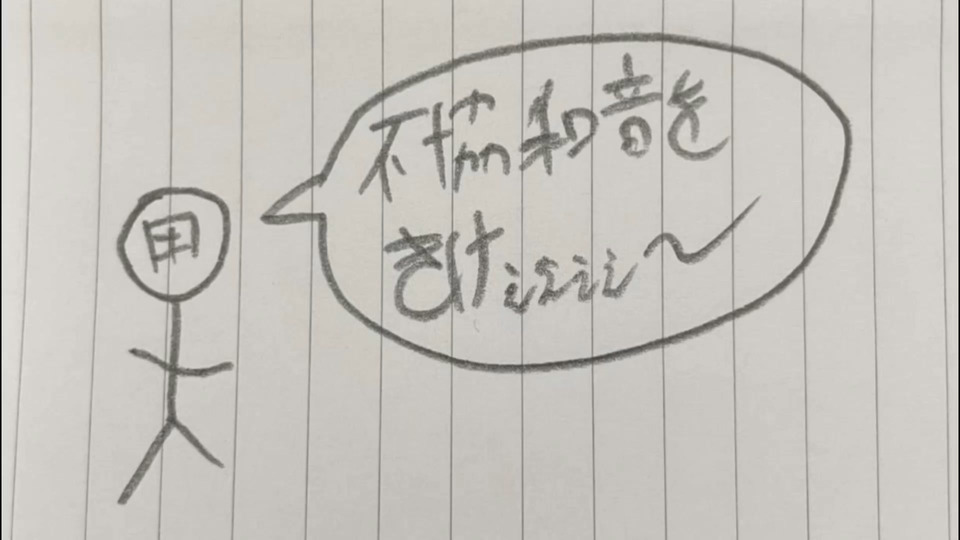 用
不協和音を
きけぇぇぇぇ〜